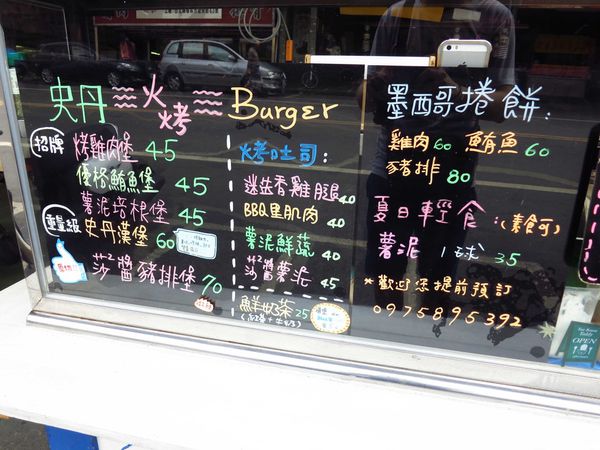 史丹 火烤 Burger
招牌
烤雞肉堡 45
優格鮪魚堡 45
薯泥培根堡 45
重量級
史丹漢堡 60
莎莎醬豬排堡 70
烤吐司:
迷迭香雞腿 40
BBQ里肌肉 40
薯泥鮮蔬 40
莎莎薯泥 45
鮮奶茶 25
墨西哥捲餅:
雞肉 60 鮪魚 60
豬排 80
夏日輕食:(素食可)
薯泥 1球 35
*歡迎您提前預訂
0975895392
OPEN